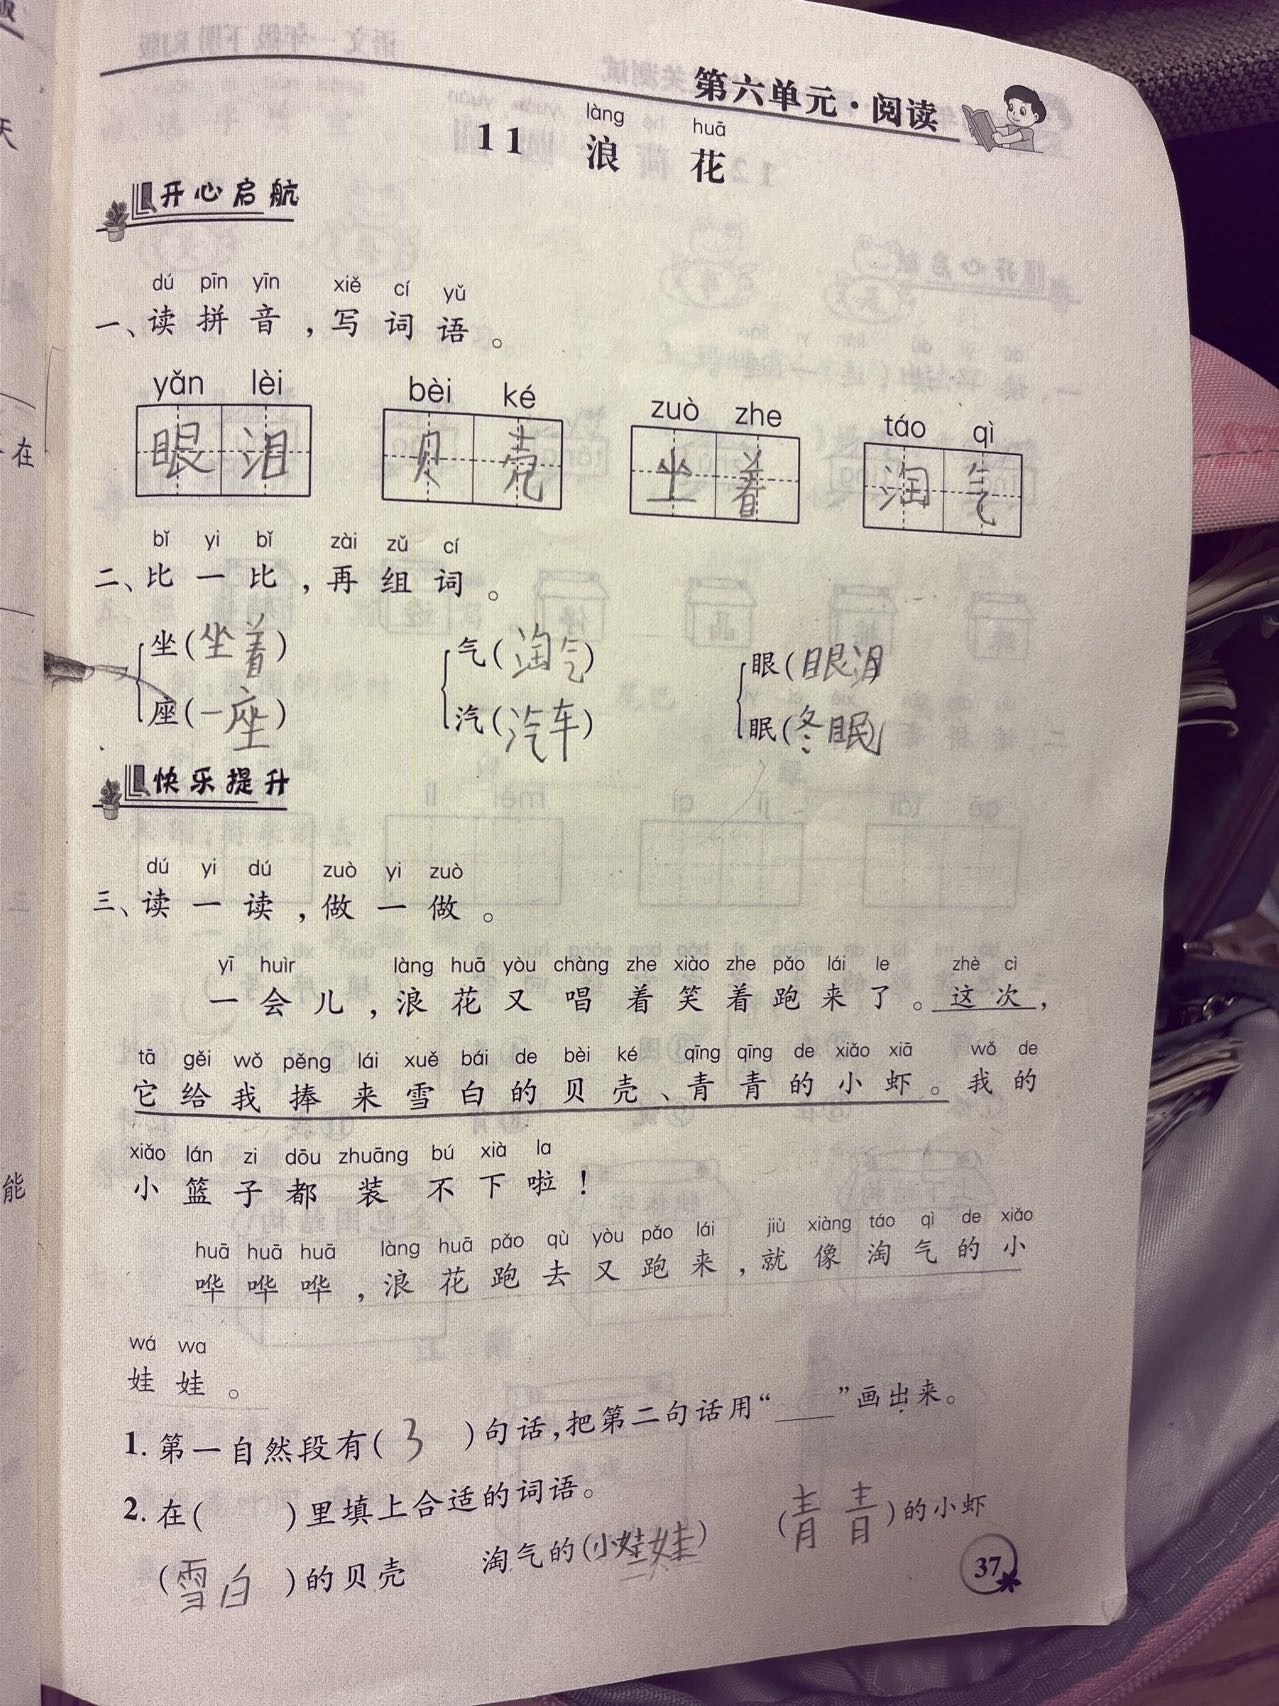 第六单元·阅读
làng huā
11 浪 花
开心启航
dú pīn yīn xiě cí yǔ
一、读拼音,写词语。
yǎn lèi bèi ké zuò zhe táo qì
眼泪 贝壳 坐着 淘气
bǐ yi bǐ zài zǔ cí
二、比一比,再组词。
坐(坐着) 气(淘气) 眼(眼泪)
座(一座) 汽(汽车) 眠(冬眠)
快乐提升
dú yi dú zuò yi zuò
三、读一读,做一做。
yī huìr làng huā yòu chàng zhe xiào zhe pǎo lái le zhè cì
一会儿,浪花又唱着笑着跑来了。这次,
tā gěi wǒ pěng lái xuě bái de bèi ké qīng qīng de xiǎo xiā wǒ de
它给我捧来雪白的贝壳、青青的小虾。我的
xiǎo lán zi dōu zhuāng bú xià la
小篮子都装不下啦!
huā huā huā làng huā pǎo qù yòu pǎo lái jiù xiàng táo qì de xiǎo
哗哗哗,浪花跑去又跑来,就像淘气的小
wá wa
娃娃。
1. 第一自然段有( 3 )句话,把第二句话用“___”画出来。
2. 在( )里填上合适的词语。
(雪白)的贝壳 淘气的(小娃娃) (青青)的小虾
37